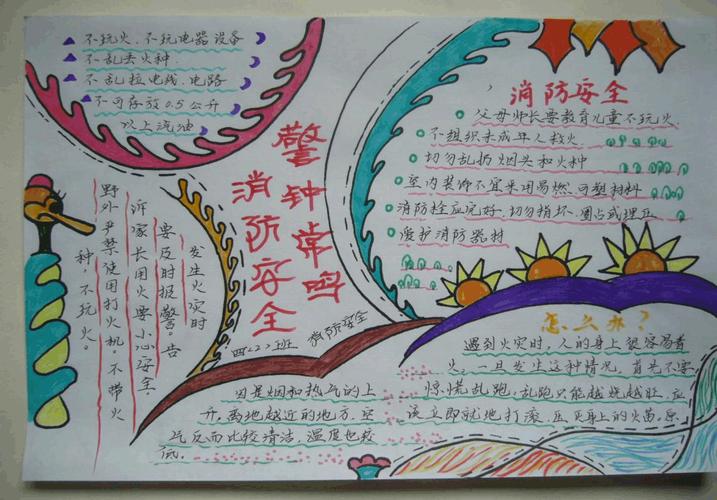 不玩火、不玩电器设备
不乱丢火种
不乱拉电线、电路
不可存放0.5公升
以上汽油
警钟常鸣
消防安全
四<2>班 消防安全
发生火灾时
要及时报警。告
诉家长用火要小心安全.
野外严禁使用打火机。不带火
种不玩火。
消防安全
父母师长要教育儿童不玩火
不组织未成年人救火
切勿乱扔烟头和火种
室内装饰不宜采用易燃、可塑材料
消防栓应完好,切勿损坏、圈占或埋压
爱护消防器材
怎么办?
遇到火灾时,人的身上很容易着
火,一旦发生这种情况,首先不要
惊慌乱跑,乱跑只能越烧越旺,应
该立即就地打滚,压灭身上的火苗,原
因是烟和热气的上
升,离地越近的地方,空
气反而比较清洁,温度也较
低.